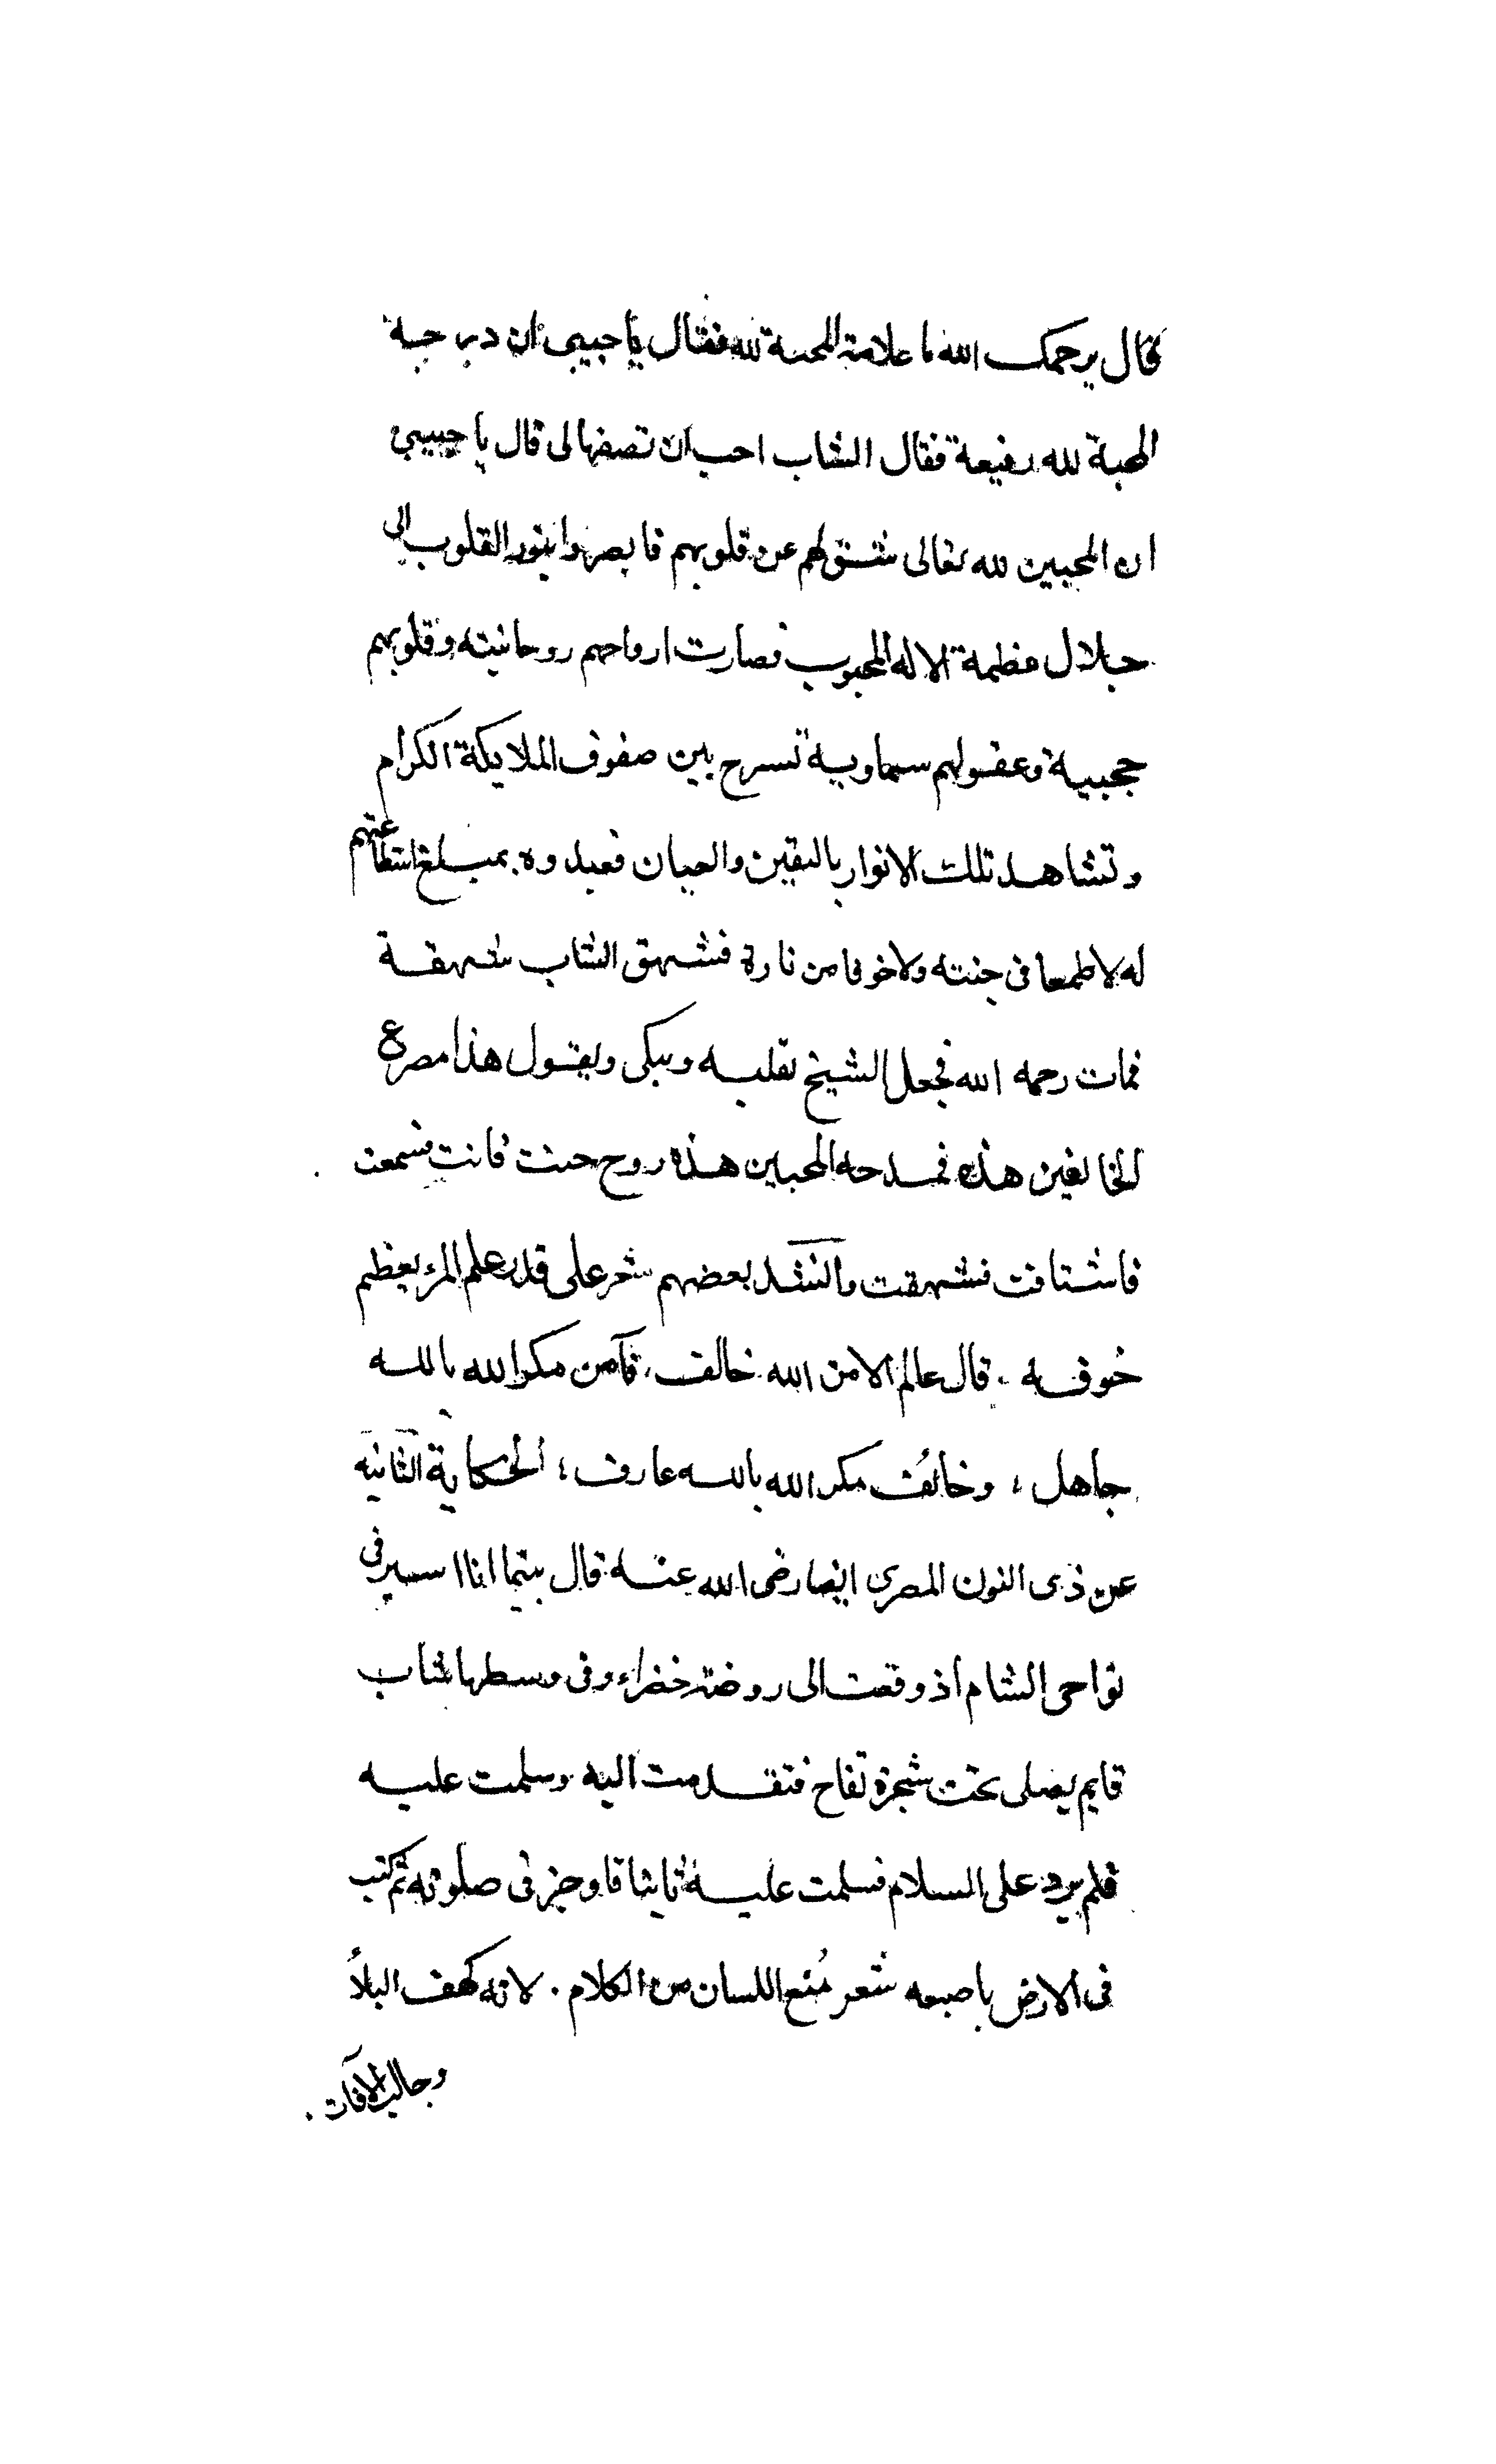 قال يرحمك الله ما علامة المحبة لله فقال يا حبيبي ان درجة
المحبة لله رفيعة فقال الشاب احب ان تصفها لى قال يا حبيبي
ان المحبين لله تعالى شق لهم عن قلوبهم فابصروا بنور القلوب الى
جلال عظمة الاله المحبوب فصارت ارواحهم روحانيته وقلوبهم
حجبية وعقولهم سماوية تسرح بين صفوف الملايكة الكرام
وتشاهد تلك الانوار باليقين والعيان فعبدوه بمبلغ استطاعتهم
له لا طمعا فى جنته ولا خوفا من ناره فشهق الشاب شهقة
فمات رحمه الله فجعل الشيخ يقلبه ويبكى ويقول هذا مصرع
الخائفين هذه درجة المحبين هذه روح حنت فانت فسمعت
فاشتاقت فشهقت وانشد بعضهم شعر على قدر علم المرء يعظم
خوفه . قال عالم الا من الله خائف، فآمن مكر الله بالله
جاهل ، وخائف مكر الله بالله عارف ، الحكاية الثانيه
عن ذى النون المصرى ايضا رضى الله عنه قال بينما انا اسير فى
نواحى الشام اذ وقعت الى روضة خضراء وفى وسطها شاب
قايم يصلى تحت شجرة تفاح فتقدمت اليه وسلمت عليه
فلم يرد على السلام فسلمت عليه ثانيا فاوجز فى صلوته ثم كتب
فى الارض باصبعه شعر مُنع اللسان من الكلام . لانه كهف البلأ
وجالب الآفات .